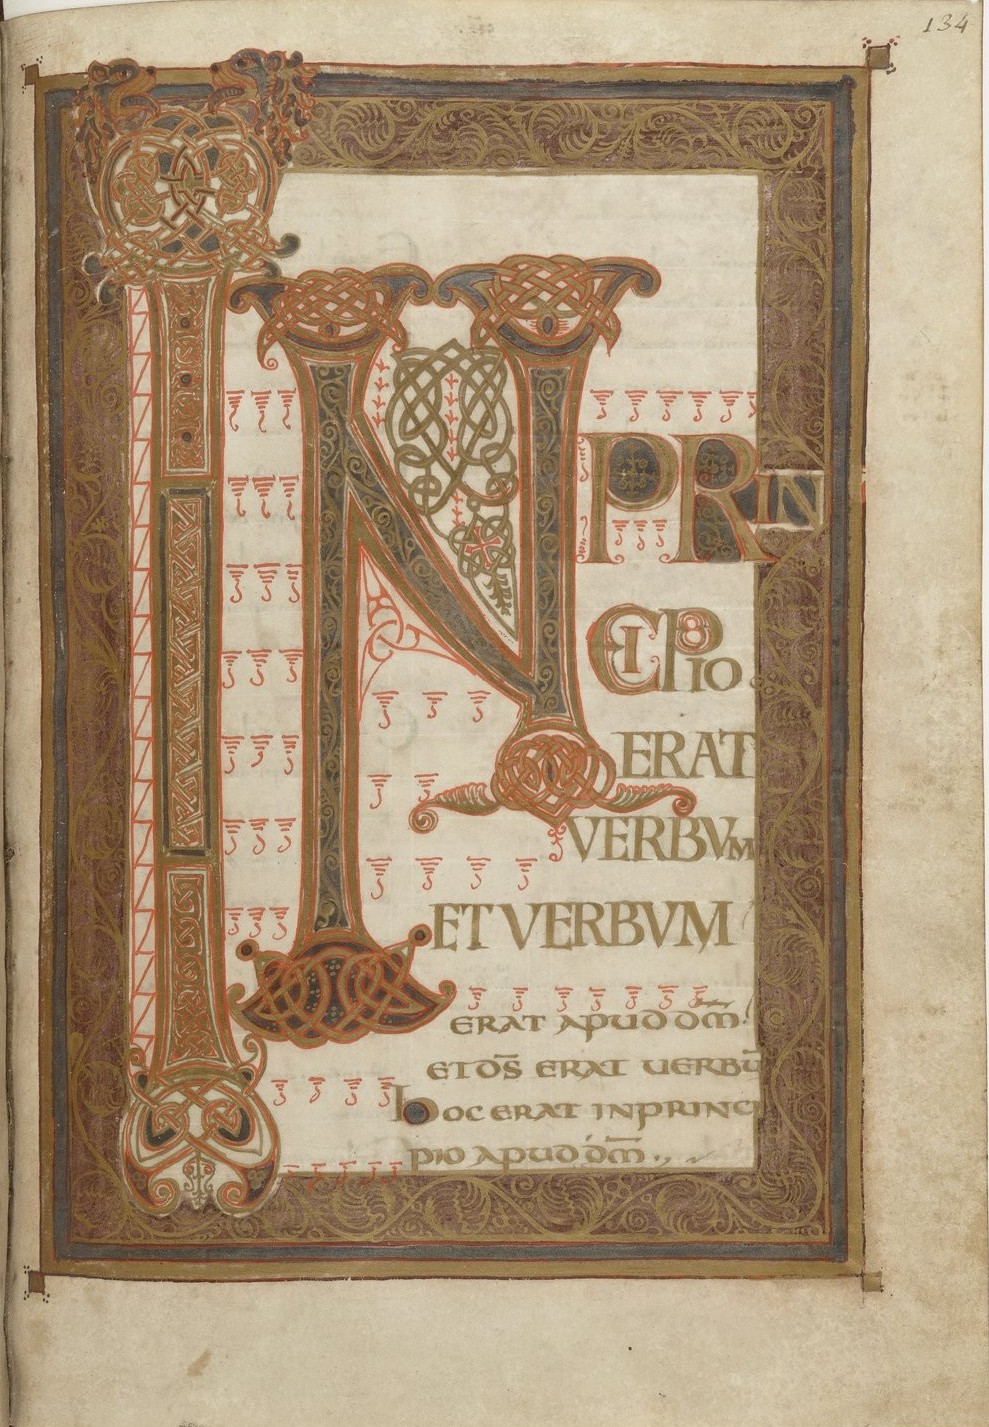 134
IN PRIN
CIPIO
ERAT
VERBVM
ET VERBVM
ERAT APUD DM̅.
ET DS̅ ERAT UERBU̅
hOC ERAT IN PRINCI
PIO APUD DM̅.,